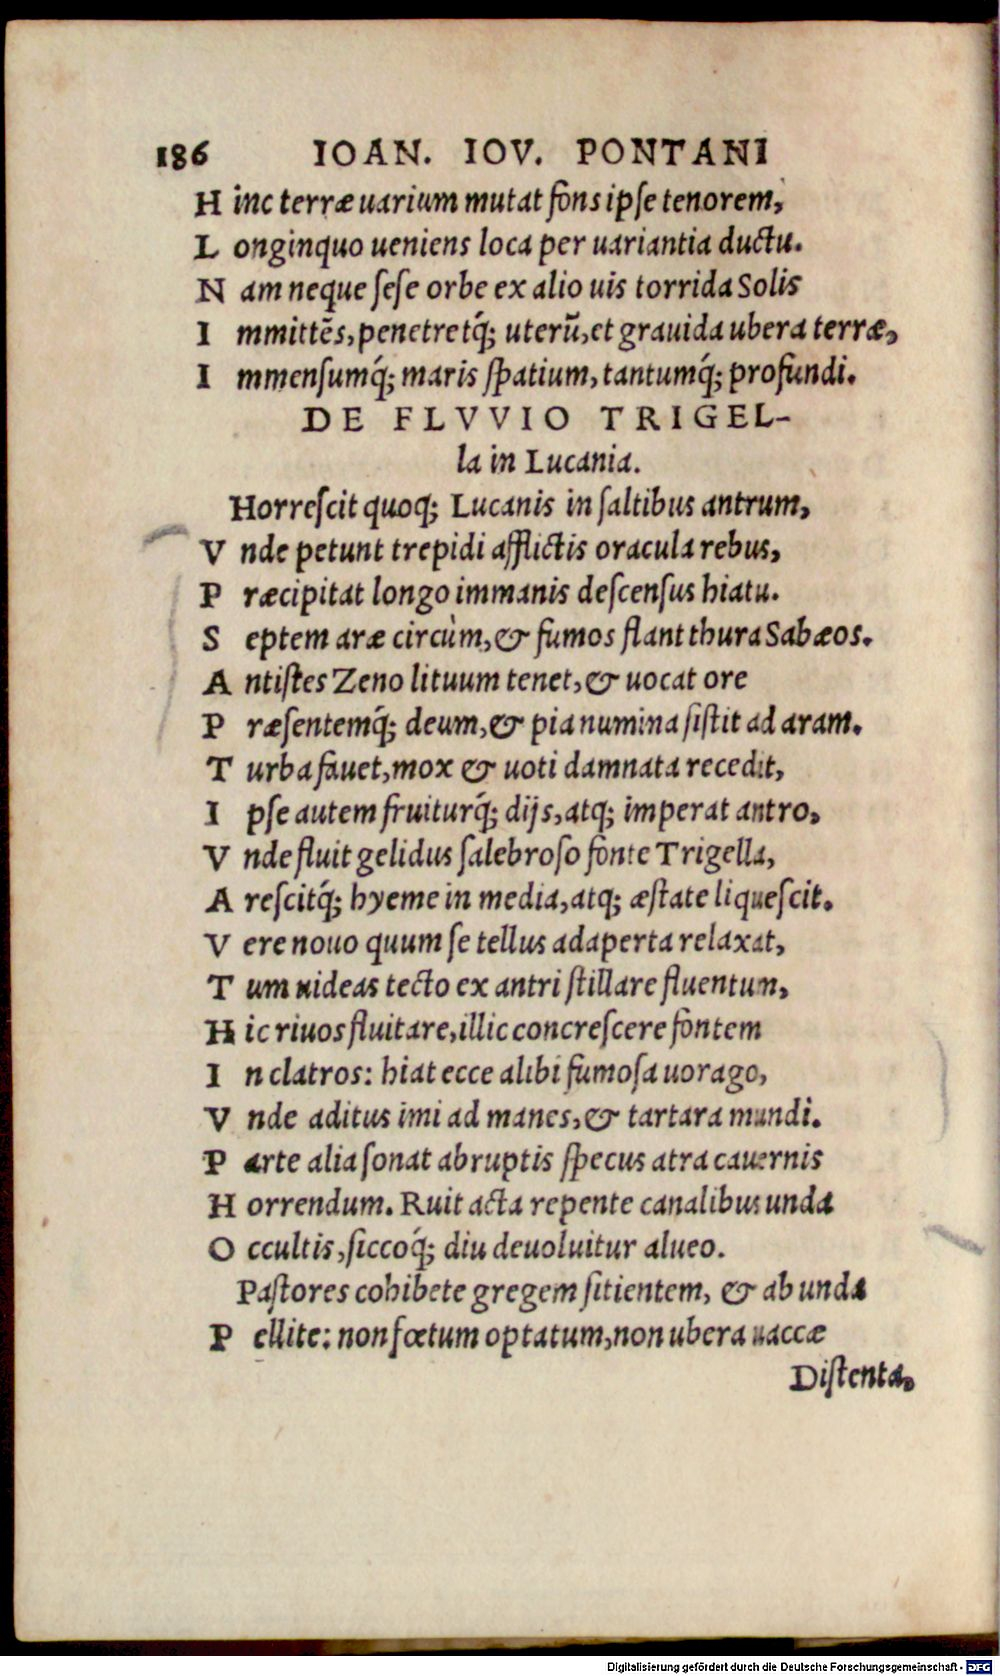 186 IOAN. IOV. PONTANI
H inc terræ uarium mutat fons ipſe tenorem,
L onginquo ueniens loca per uariantia ductu.
N am neque ſeſe orbe ex alio uis torrida Solis
I mmittẽs, penetretq́; uterũ, et grauida ubera terræ,
I mmenſumq́; maris ſpatium, tantumq́; profundi.
DE FLVVIO TRIGEL-
la in Lucania.
Horreſcit quoq; Lucanis in ſaltibus antrum,
V nde petunt trepidi afflictis oracula rebus,
P ræcipitat longo immanis deſcenſus hiatu.
S eptem aræ circùm, & fumos flant thura Sabæos.
A ntiſtes Zeno lituum tenet, & uocat ore
P ræſentemq́; deum, & pia numina ſiſtit ad aram.
T urba fauet, mox & uoti damnata recedit,
I pſe autem fruiturq́; dijs, atq; imperat antro,
V nde fluit gelidus ſalebroſo fonte Trigella,
A reſcitq́; hyeme in media, atq; æſtate liqueſcit.
V ere nouo quum ſe tellus adaperta relaxat,
T um uideas tecto ex antri ſtillare fluentum,
H ic riuos fluitare, illic concreſcere fontem
I n clatros: hiat ecce alibi fumoſa uorago,
V nde aditus imi ad manes, & tartara mundi.
P arte alia ſonat abruptis ſpecus atra cauernis
H orrendum. Ruit acta repente canalibus unda
O ccultis, ſiccoq́; diu deuoluitur alueo.
Paſtores cohibete gregem ſitientem, & ab unda
P ellite: non fœtum optatum, non ubera uaccæ
Diſtenta,
Digitalisierung gefördert durch die Deutsche Forschungsgemeinschaft - DFG